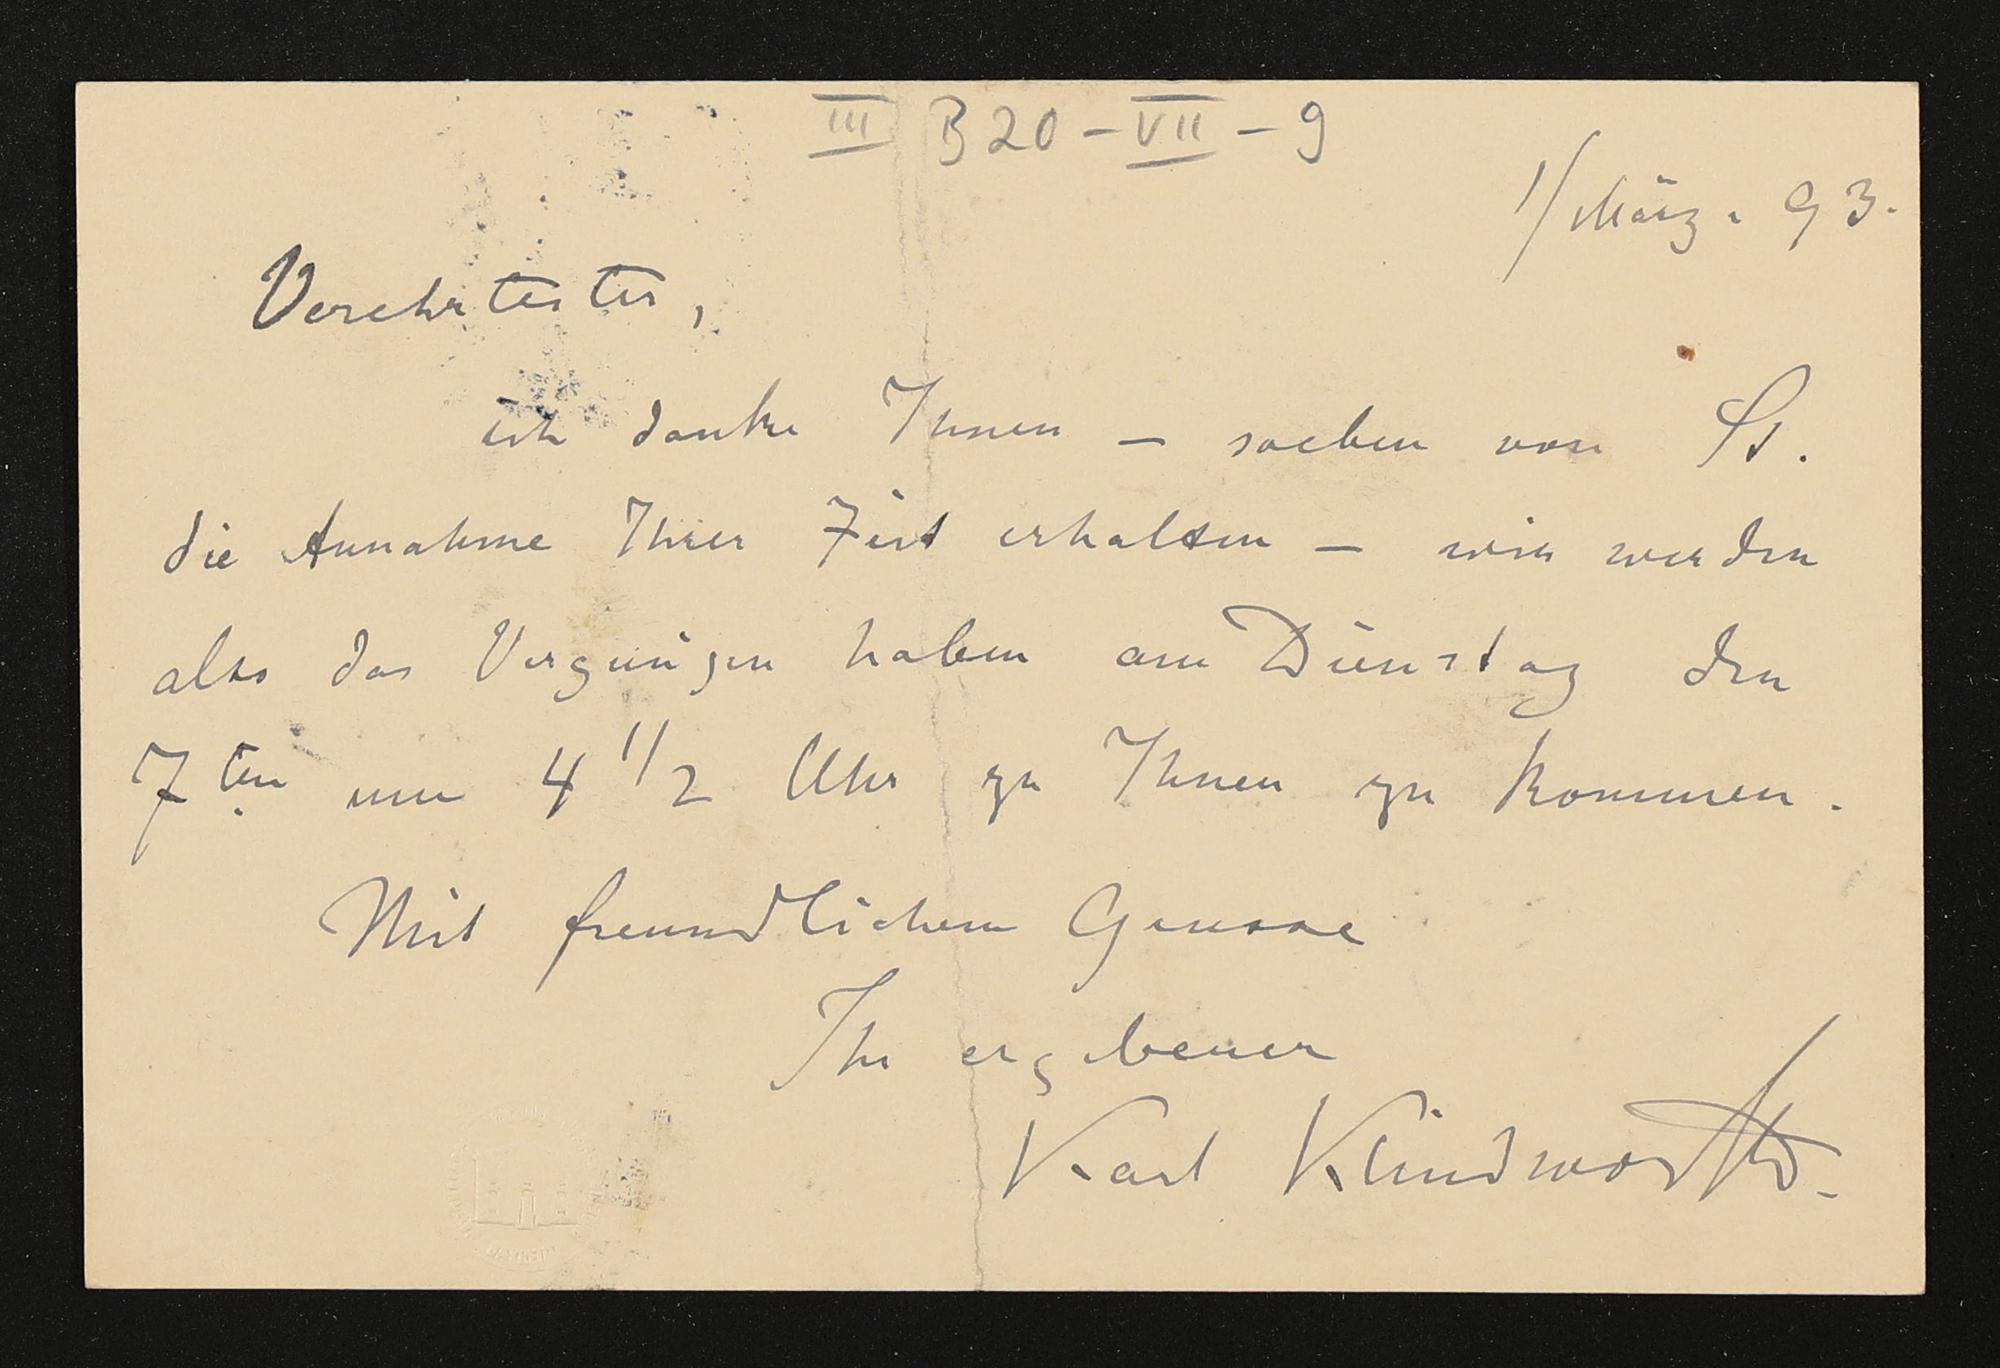 III B 20 - VII - 9
1/März. 93.
Verehrtester,
ich danke Ihnen – soeben von St.
die Annahme Ihrer Zeit erhalten – wir werden
also das Vergnügen haben am Dienstag den
7ten um 4 1/2 Uhr zu Ihnen zu kommen.
Mit freundlichem Grusse
Ihr ergebener
Karl Klindworth.